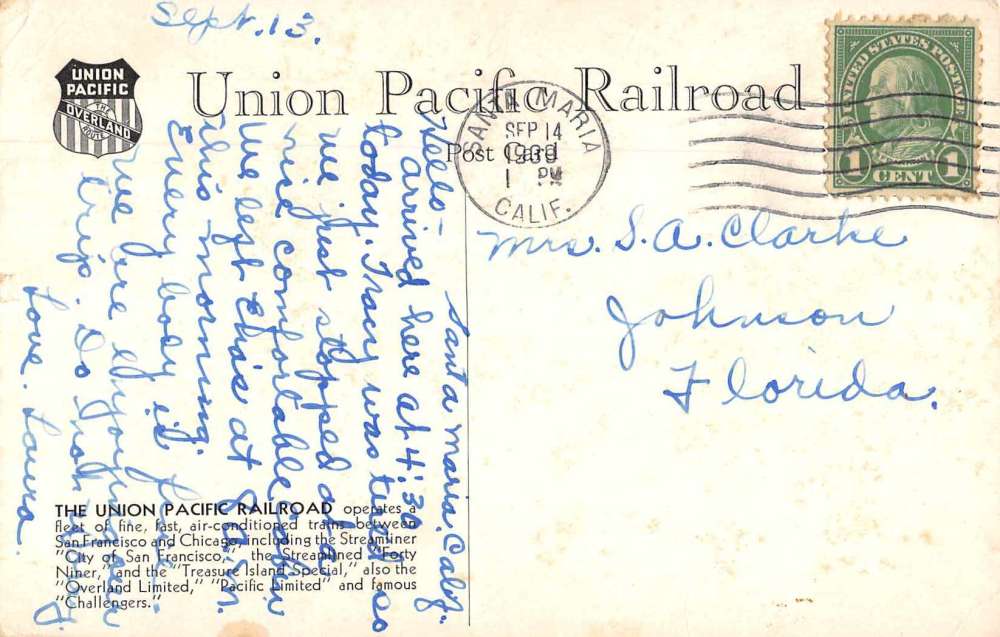 Sept. 13.
UNION
PACIFIC
THE
OVERLAND
ROUTE
Union Pacific Railroad
Post Card
SANTA MARIA
SEP 14
1939
1 PM
CALIF.
UNITED STATES POSTAGE
FRANKLIN
1 CENT 1
Santa Maria. Calif.
Hello-
arrived here at 4:30
today. Tracy was tired so
we just stopped at a
nice comfortable cabin
We left Chas at 8 a.m.
this morning.
Every body is fine.
We are enjoying our
trip. So much
Love. Laura.
Mrs. S. A. Clarke
Johnson
Florida.
THE UNION PACIFIC RAILROAD operates a
fleet of fine, fast, air-conditioned trains between
San Francisco and Chicago, including the Streamliner
"City of San Francisco," the Streamlined "Forty
Niner," and the "Treasure Island Special," also the
"Overland Limited," "Pacific Limited" and famous
"Challengers."